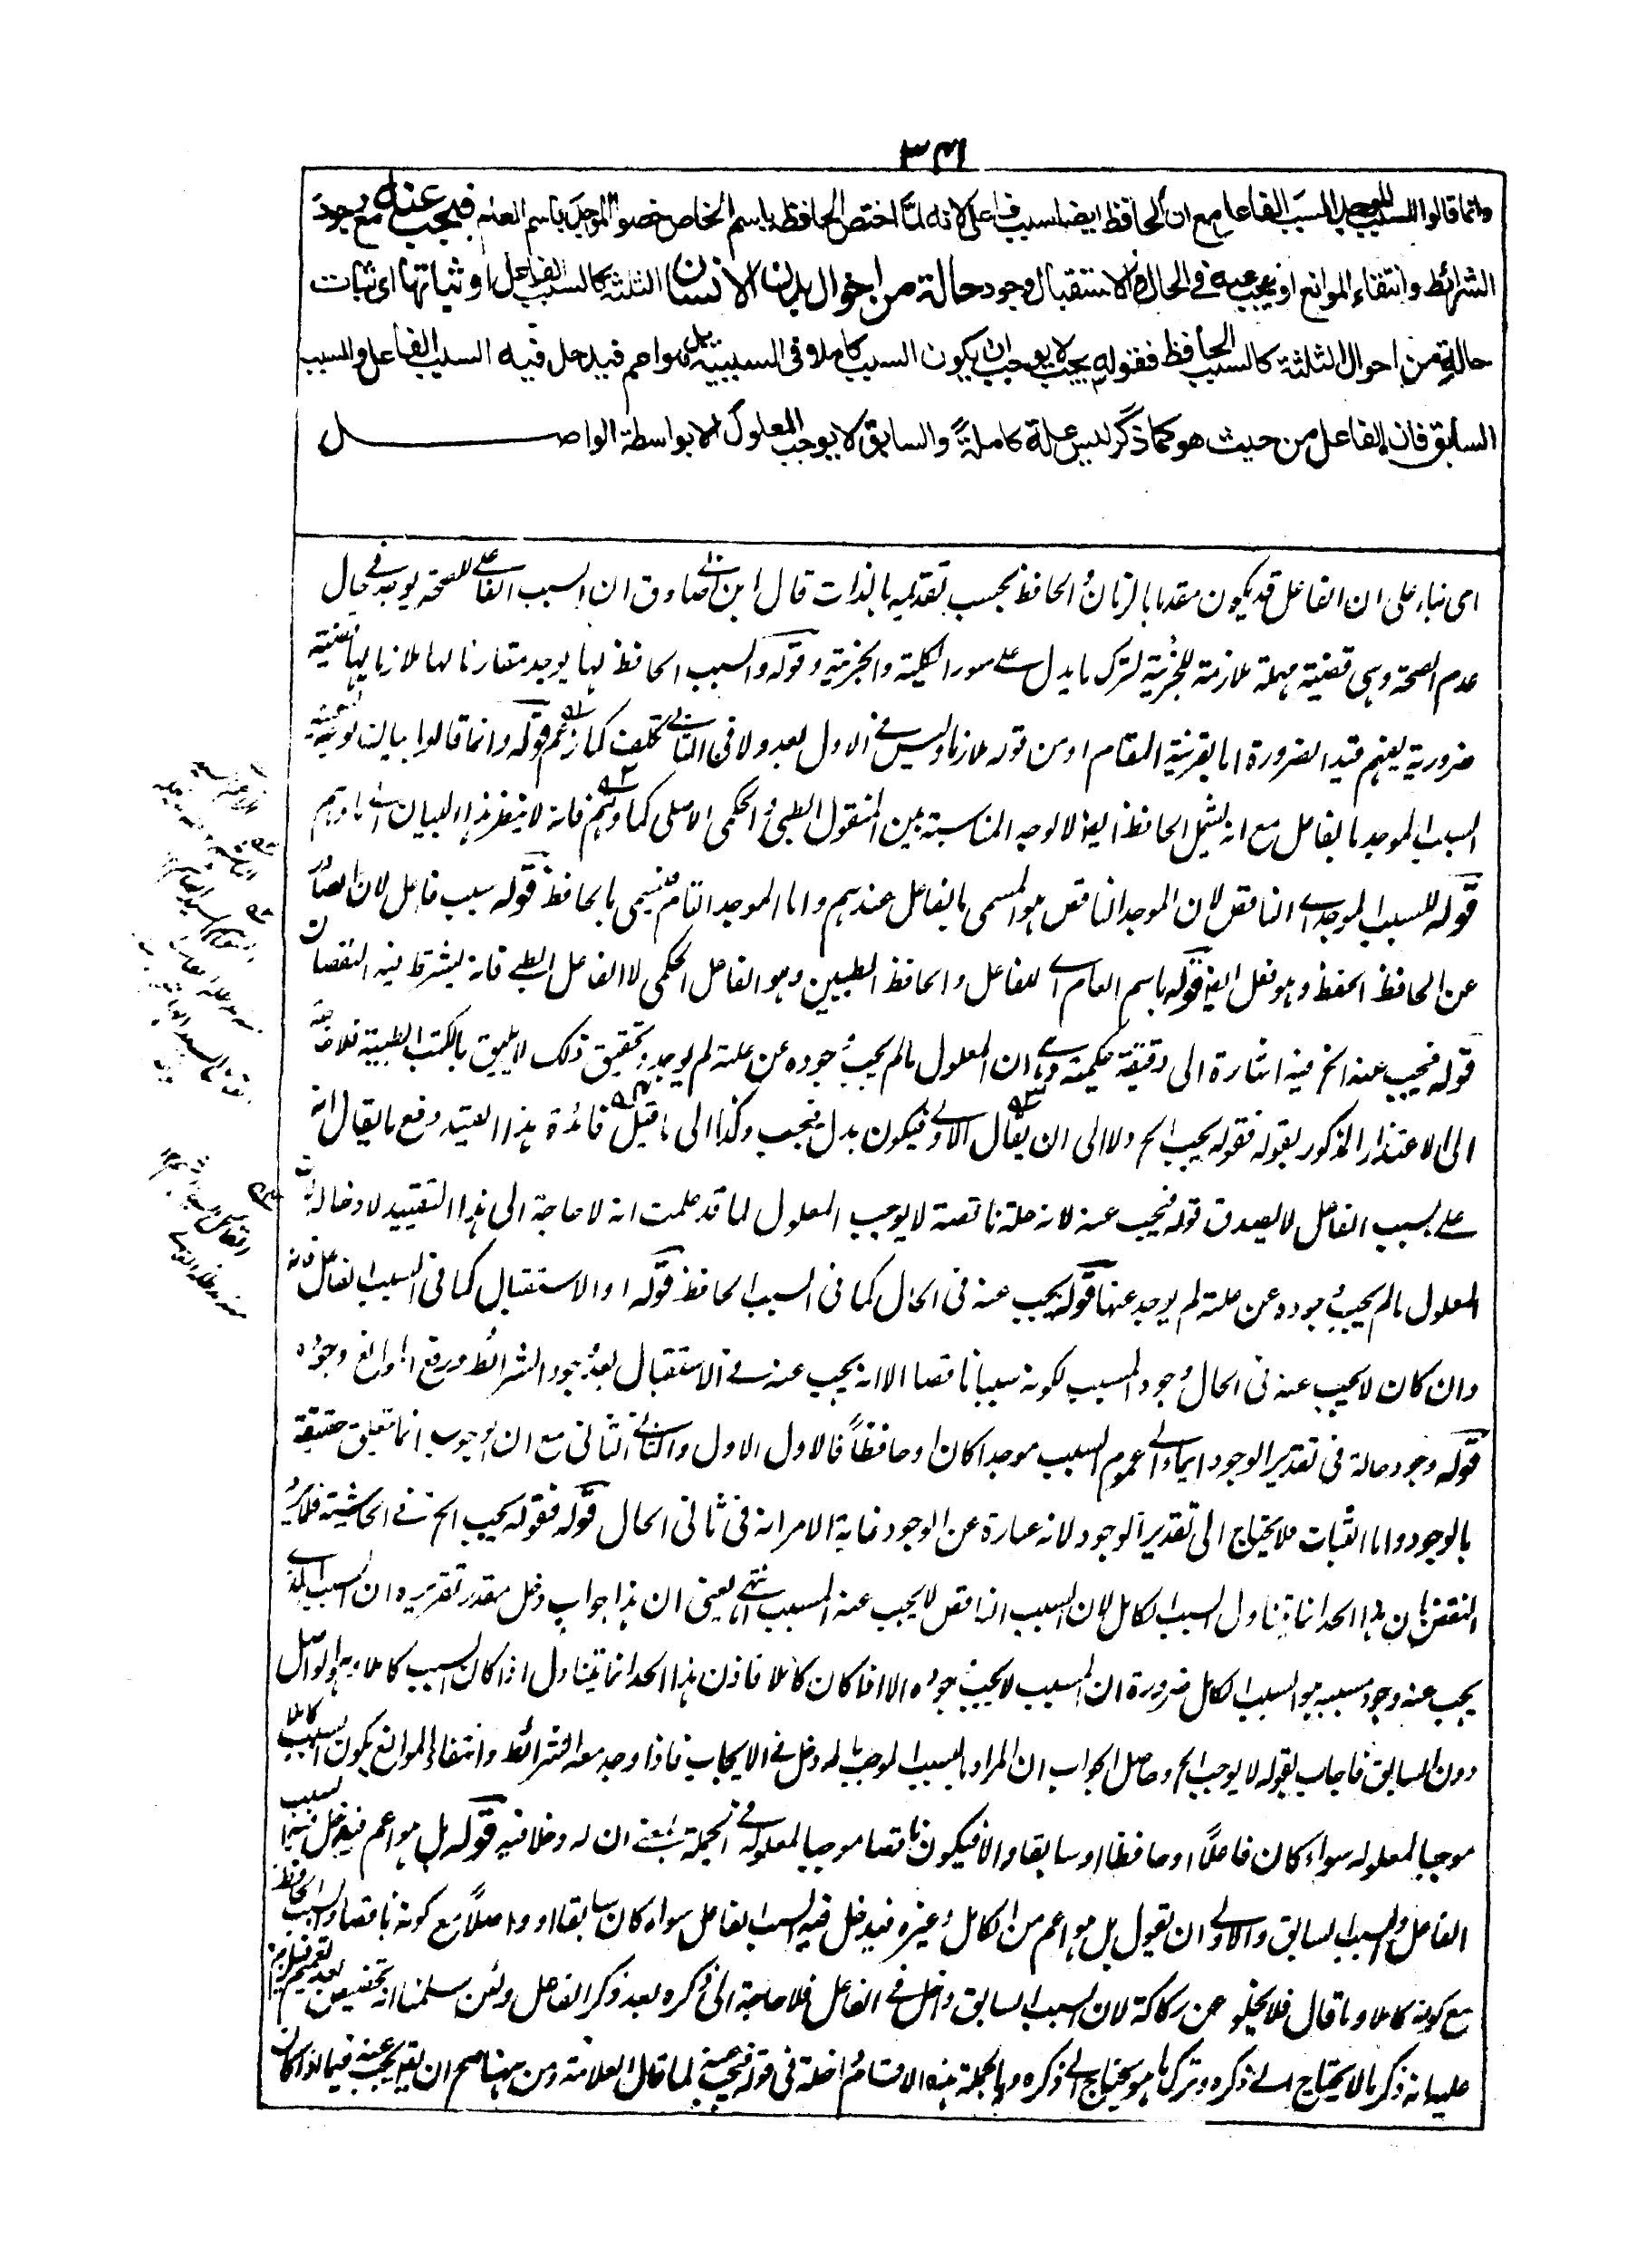 ٣٤١
وانما قالوا للسبب الموجد السبب الفاعل مع ان الحافظ ايضا سبب فاعل لانه لما اختص الحافظ باسم الخاص خصوا الموجد باسم العام فيجب عنه مع وجود
الشرائط وانتفاء الموانع او يجب عنه في الحال او الاستقبال وجود حالة من احوال بدن الانسان الثلثة كالسبب الفاعل او ثباتها اى ثبات
حالة من احوال الثلثة كالسبب الحافظ فقوله يجب لا يوجب ان يكون السبب كاملا فى السببية بل هو اعم فيدخل فيه السبب الفاعل والسبب
السابق فان الفاعل من حيث هو كما ذكر ليس علة كاملة والسابق لا يوجب المعلول الا بواسطة الواصل
اى بناء على ان الفاعل قد يكون مقدما بالزمان والحافظ بحسب تقديمه بالذات قال ابن ابى صادق ان السبب الفاعلى للصحة يوجد فى حال
عدم الصحة وهى قضية مهملة ملازمة للجزئية لترك ما يدل على سور الكلية والجزئية وقوله والسبب الحافظ لها يوجد مقارنا لها ملازما لها قضية
ضرورية يفهم قيد الضرورة اما بقرينة المقام او من قوله ملازما وليس فى الاول بعد ولا فى الثانى تكلف كما زعم قوله وانما قالوا بيان لوجه تسمية
السبب الموجد بالفاعل مع انه يشمل الحافظ ايضا لا لوجه المناسبة بين المنقول الطبى والحكمى الاصلى كما وهم فانه لا ينظر هذا البيان الى ما وهم
قوله للسبب الموجد اى الناقص لان الموجد الناقص هو المسمى بالفاعل عندهم واما الموجد التام فيسمى بالحافظ قوله سبب فاعل لان الصادر
عن الحافظ الحفظ وهو فعل ايضا قوله باسم العام اى للفاعل والحافظ الطبيين وهو الفاعل الحكمى لا الفاعل الطبى فانه يشترط فيه النقصان
قوله فيجب عنه الخ فيه اشارة الى دقيقة حكمية وهى ان المعلول ما لم يجب وجوده عن علته لم يوجد وتحقيق ذلك لا يليق بالكتب الطبية فلا حاجة
الى الاعتذار المذكور بقوله فقوله يجب الخ ولا الى ان يقال الاولى فيكون بدل فيجب وكذا الى ما قيل فائدة هذا القيد دفع ما يقال انه
على السبب الفاعل لا يصدق قوله فيجب عنه لانه علة ناقصة لا يوجب المعلول لما قد علمت انه لا حاجة الى هذا التقييد لا دخاله فان
المعلول ما لم يجب وجوده عن علته لم يوجد عنها قوله يجب عنه فى الحال كما فى السبب الحافظ قوله او الاستقبال كما فى السبب الفاعل فانه
وان كان لا يجب عنه فى الحال وجود المسبب لكونه سببا ناقصا الا انه يجب عنه فى الاستقبال بعد وجود الشرائط ورفع الموانع وجوده
قوله وجود حالة فى تقدير الوجود ايماء الى عموم السبب موجدا كان او حافظاً فالاول الاول والثانى الثانى مع ان الوجوب انما يتعلق حقيقة
بالوجود واما الثبات فلا يحتاج الى تقدير الوجود لانه عبارة عن الوجود غاية الامر انه فى ثانى الحال قوله فقوله يجب الخ فى الحاشية فلا يرد
النقض بان هذا الحد انما يتناول السبب الكامل لان السبب الناقص لا يجب عنه المسبب انتهى يعنى ان هذا جواب دخل مقدر تقريره ان السبب الذى
يجب عنه وجود مسببه هو السبب الكامل ضرورة ان المسبب لا يجب وجوده الا اذا كان كاملا فاذن هذا الحد انما يتناول اذا كان السبب كاملا وهو الواصل
دون السابق فاجاب بقوله لا يوجب الخ وحاصل الجواب ان المراد بالسبب الموجب ما له دخل فى الايجاب فاذا وجد معه الشرائط وانتفاء الموانع يكون السبب كاملا
موجبا لمعلوله سواء كان فاعلاً او حافظا او سابقا والا فيكون ناقصا موجبا لمعلوله فى الجملة بمعنى ان له دخلا فيه قوله بل هو اعم فيدخل فيه السبب
الفاعل والسبب السابق والاولى ان يقول بل هو اعم من الكامل وغيره فيدخل فيه السبب الفاعل سواء كان سابقا او واصلاً مع كونه ناقصا والسبب الحافظ
مع كونه كاملا وما قال فلا يخلو عن ركاكة لان السبب السابق داخل فى الفاعل فلا حاجة الى ذكره بعد ذكر الفاعل ولئن سلمنا انه تخصيص بعد تعميم
عليه انه ذكر ما لا يحتاج الى ذكره وترك ما هو يحتاج الى ذكره وبالجملة هذه الاقسام داخلة فى قوله فيجب عنه لما قال العلامة ومن ههنا صح ان يقال يجب عنه فيما اذا كان